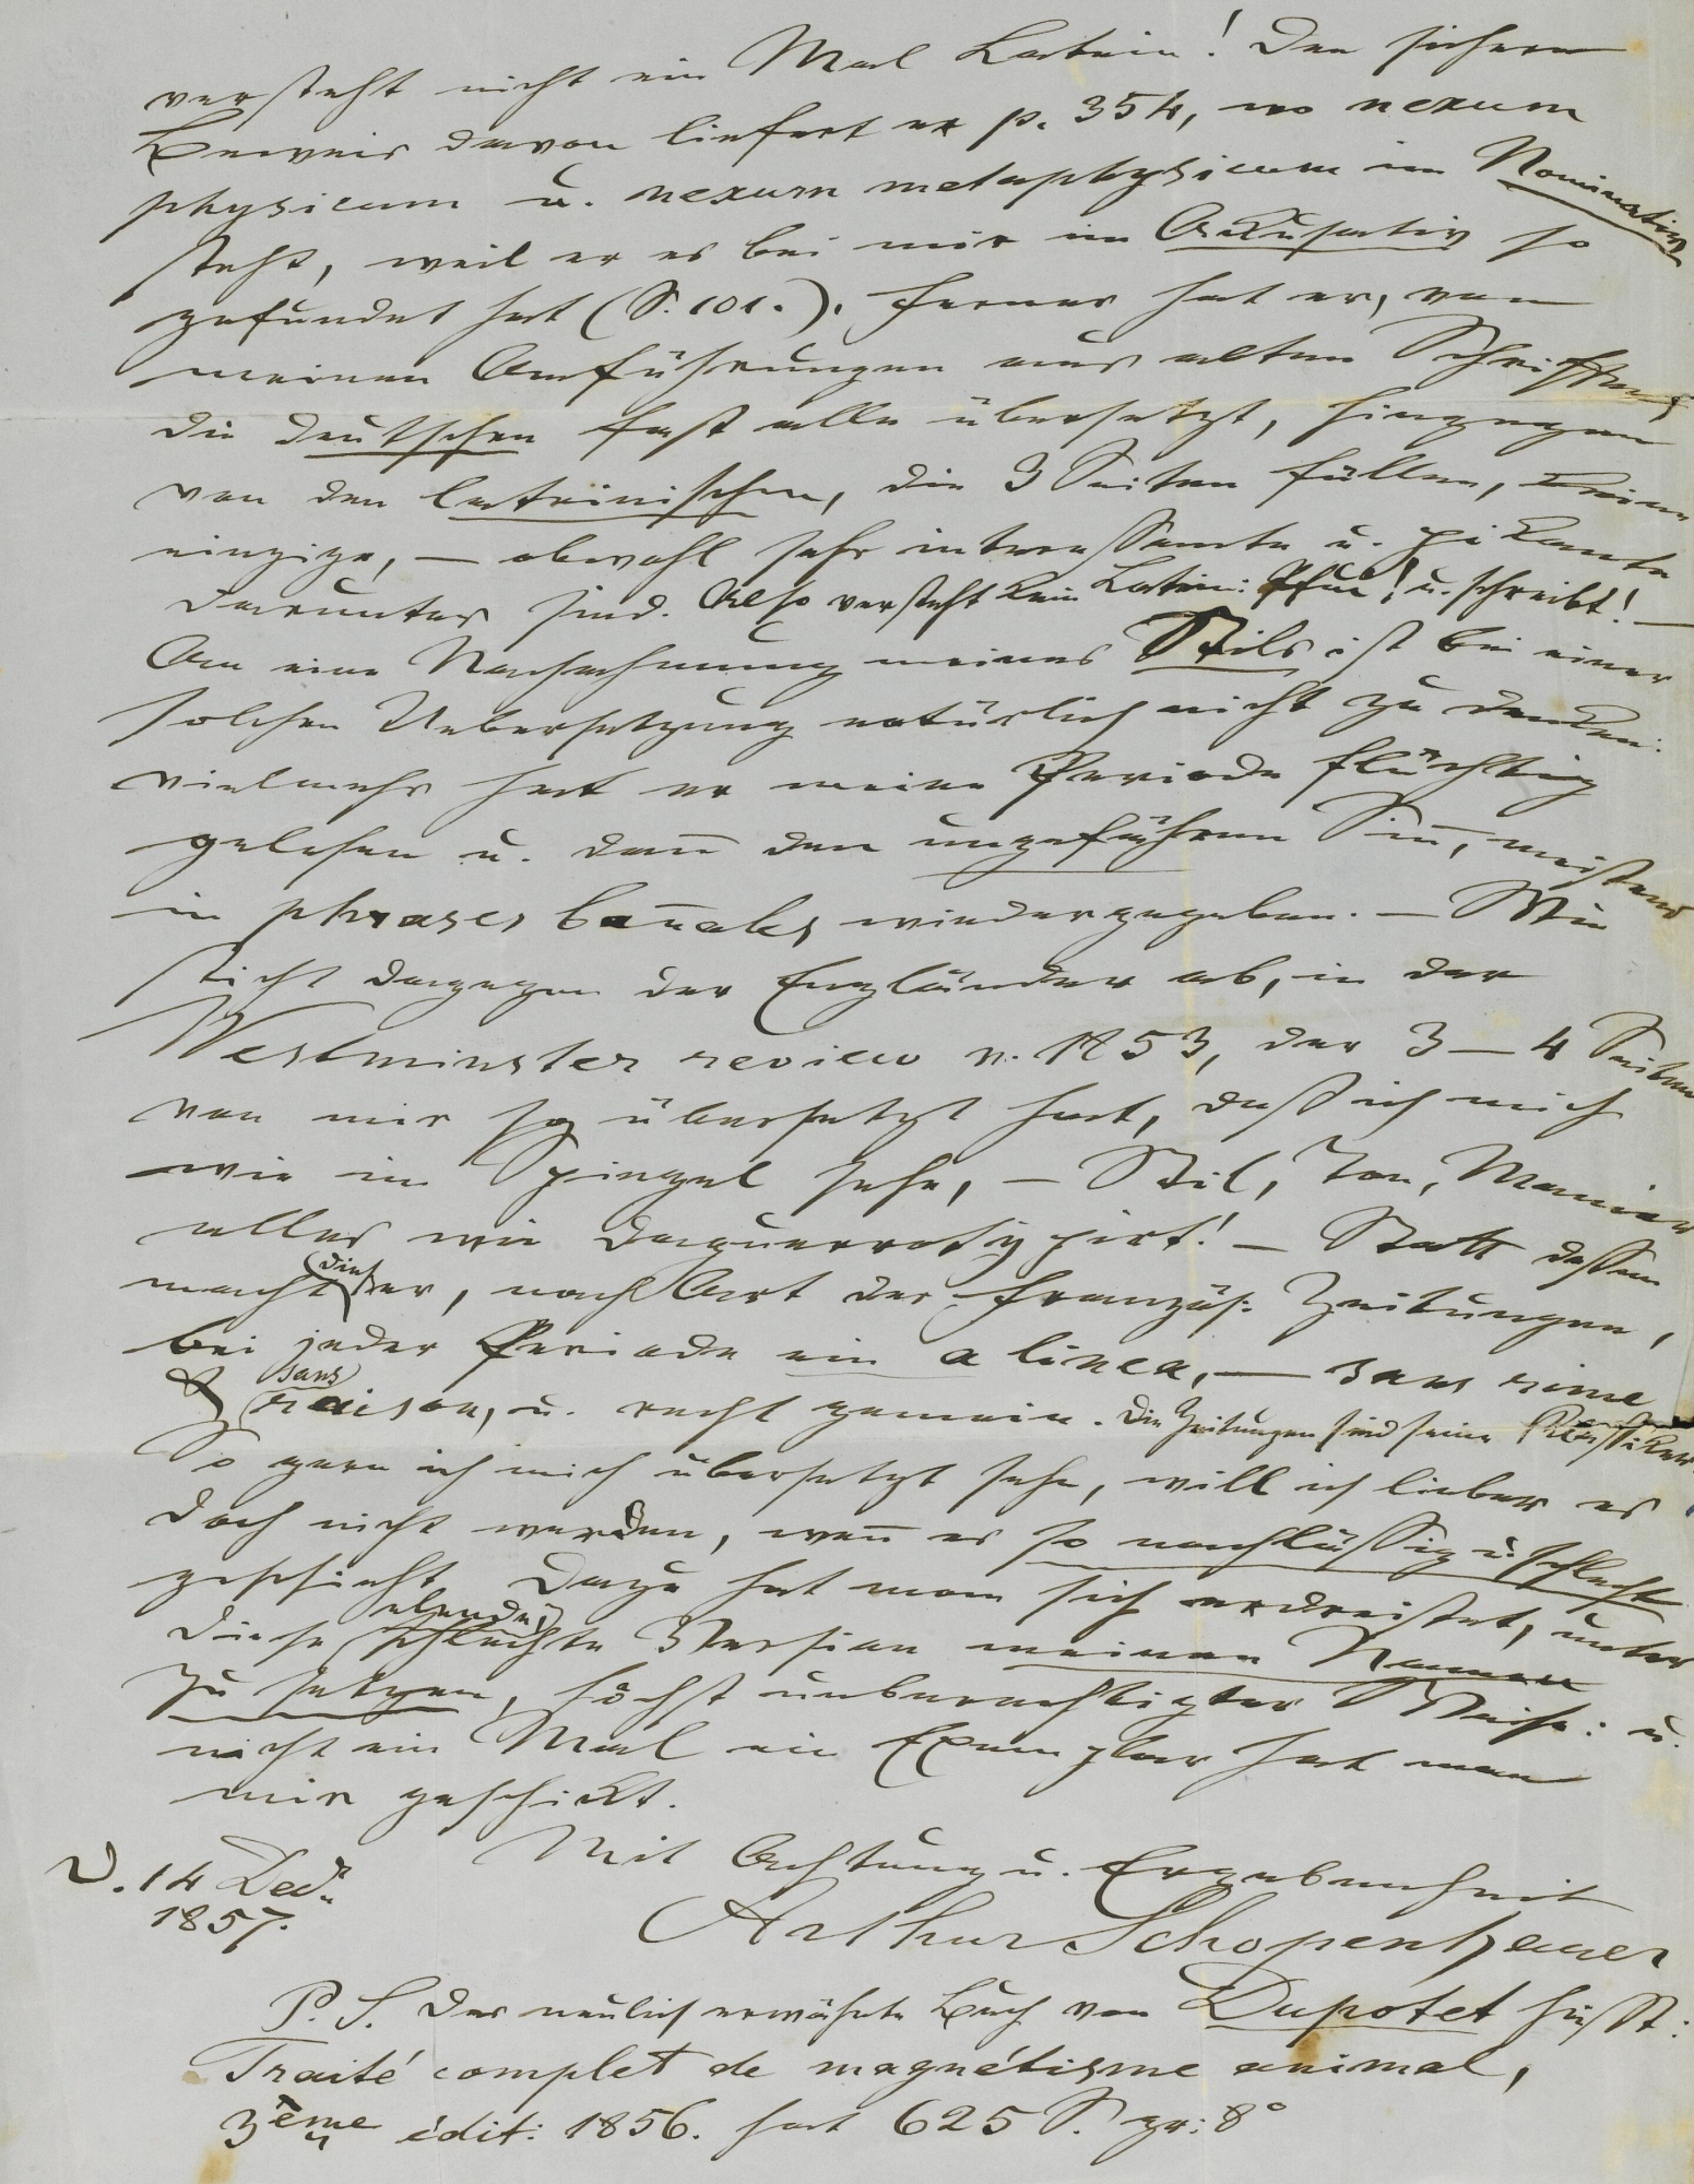 versteht nicht ein Mal Latein! Den sichern
Beweis davon liefert er p. 354, wo nexum
physicum u. nexum metaphysicum im Nominativ
steht, weil er es bei mir im Akkusativ so
gefunden hat (S. 101.). Ferner hat er, von
meinen Anführungen aus alten Schriften,
die deutschen fast alle übersetzt, hingegen
von den lateinischen, die 3 Seiten füllen, keine
einzige, — obwohl sehr interessante u. pikante
darunter sind. Also versteht kein Latein: Pfui! u. schreibt! —
An eine Nachahmung meines Stils ist bei einer
solchen Uebersetzung natürlich nicht zu denken:
vielmehr hat er meine Periode flüchtig
gelesen u. dann den ungefähren Sinn, meistens
in phrases banales wiedergegeben. — Wie
sticht dagegen der Engländer ab, in der
Westminster review v. 1853, der 3—4 Seiten
von mir so übersetzt hat, daß ich mich
wie im Spiegel sehe, — Stil, Ton, Manier
alles wie daguerrotypirt! — Statt dessen
macht dieser, nach Art der französ: Zeitungen,
bei jeder Periode ein a linea, — sans rime
& sans raison, u. recht gemein. Die Zeitungen sind seine Klassiker.
So gern ich mich übersetzt sehe, will ich lieber es
doch nicht werden, wenn es so nachlässig u. schlecht
geschieht. Dazu hat man sich erdreistet, unter
diese elende schlechte Version meinen Namen
zu setzen, höchst unberechtigter Weise: u.
nicht ein Mal ein Exemplar hat man
mir geschickt.
Mit Achtung u. Ergebenheit
Arthur Schopenhauer
D. 14 Decr
1857.
P. S. Das neulich erwähnte Buch von Dupotet heißt:
Traité complet de magnétisme animal,
3ème édit: 1856. hat 625 S. gr: 8°